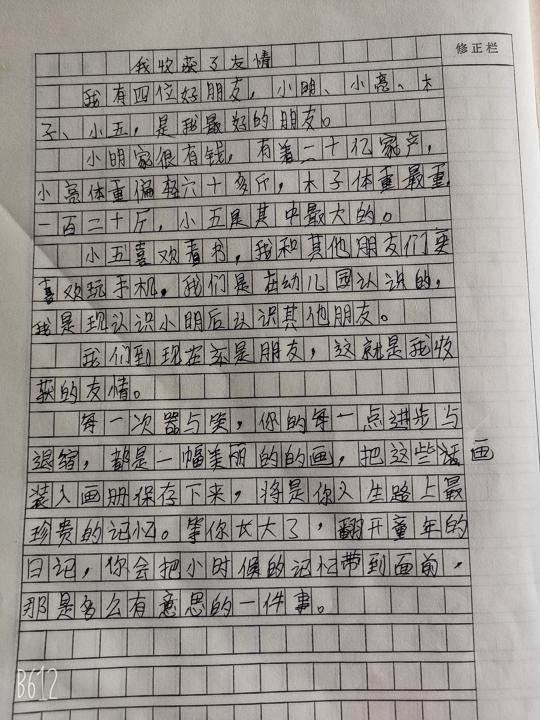 修正栏
我收获了友情
我有四位好朋友，小明、小亮、木
子、小五，是我最好的朋友。
小明家很有钱，有着二十亿家产，
小亮体重偏轻六十多斤，木子体重最重，
一百二十斤，小五是其中最大的。
小五喜欢看书，我和其他朋友们更
喜欢玩手机，我们是在幼儿园认识的，
我是现认识小明后认识其他朋友。
我们到现在亦是朋友，这就是我收
获的友情。
每一次器与笑，你的每一点进步与
退缩，都是一幅美丽的的画，把这些画
装入画册保存下来，将是你人生路上最
珍贵的记忆。等你长大了，翻开童年的
日记，你会把小时候的记忆带到面前，
那是多么有意思的一件事。
B612